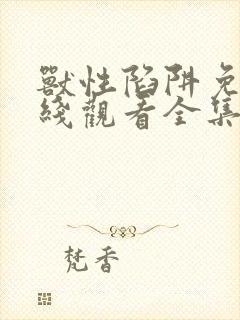 獸性陷阱免
綫觀看全集
梵香